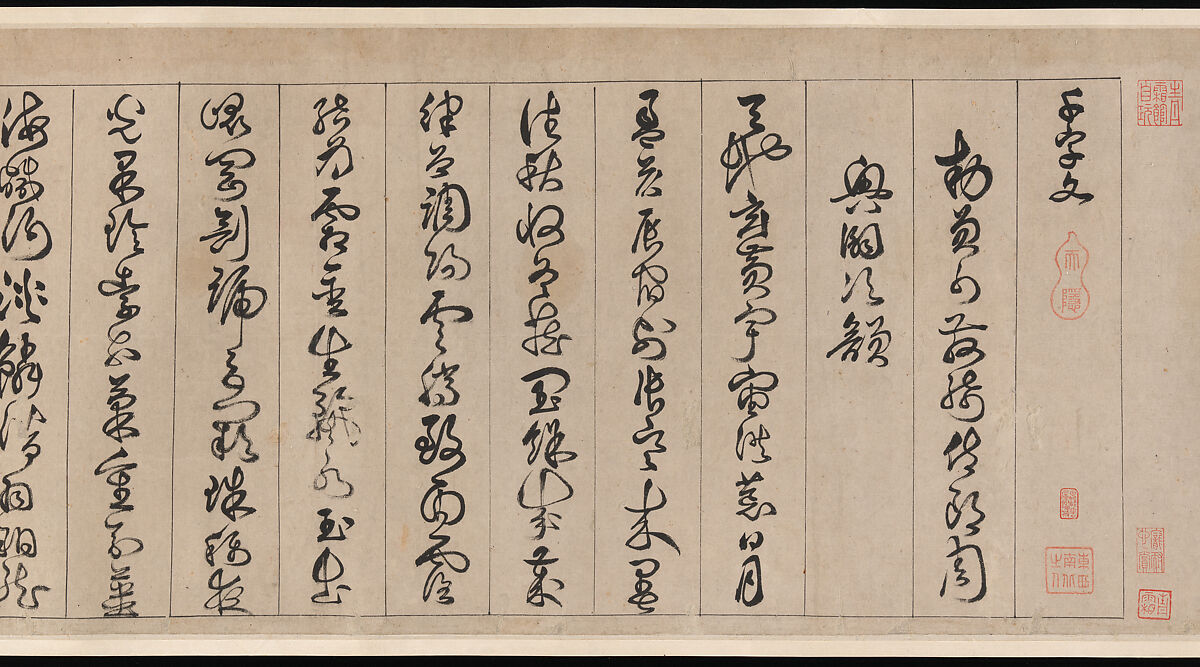 千字文
天隱
東西南北之人
勅員外散騎侍郎周
興嗣次韻
天地玄黃宇宙洪荒日月
盈昃辰宿列張寒來暑
往秋收冬藏閏餘成歲
律呂調陽雲騰致雨露
結為霜金生麗水玉出
崑岡劍號巨闕珠稱夜
光果珍李柰菜重芥薑
海鹹河淡鱗潛羽翔龍